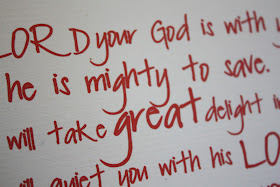 LORD your God is with
he is mighty to save.
will take great delight i
will quiet you with his LO